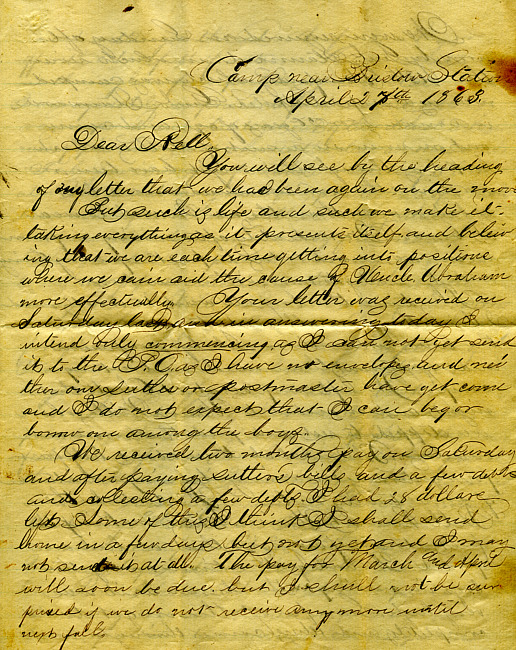 Camp near Bristow Station
April 27th 1863.
Dear Nell.
You will see by the heading
of my letter that we had been again on the move
But such is life and such we make it-
taking everything as it presents itself and believ
ing that we are each time getting into positions
where we can aid the cause of Uncle Abraham
more effectually. Your letter was received on
Saturday last and in answering today I
intend only commencing as I can not get send
it to the P.O. as I have no envelope and nei
ther our sutler or postmaster have yet come
and I do not expect that I can beg or
borrow one among the boys.
We received two months pay on Saturday
and after paying sutlers bills and a few debts
and collecting a few debts I had 28 dollars
left. Some of this I think I shall send
home in a few days but not yet and I may
not send it at all. The pay for March and April
will soon be due but I shall not be sur
prised if we do not receive any more until
next fall.